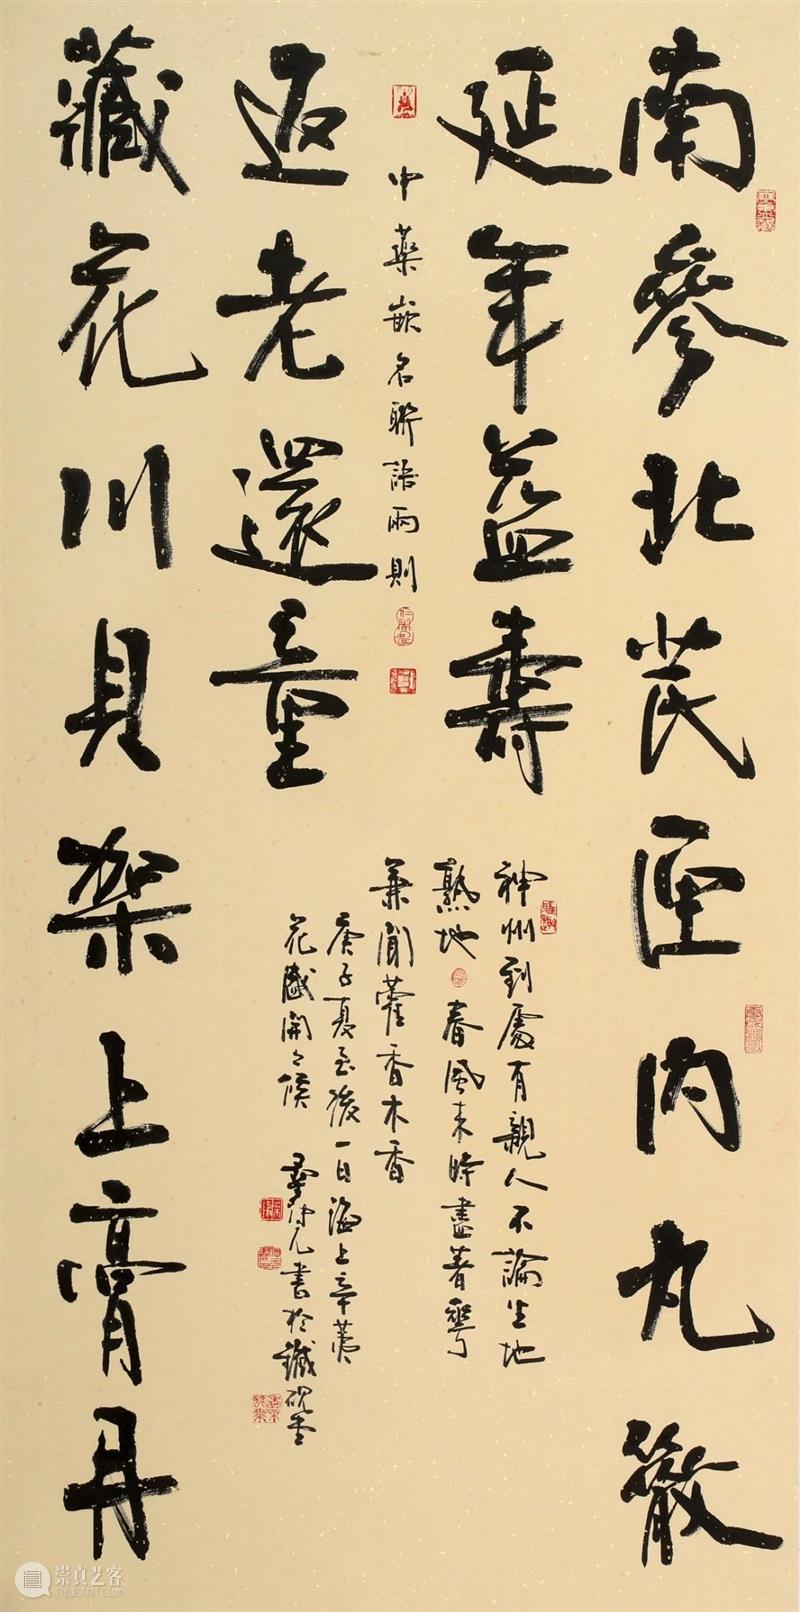 南參北芪匣内丸散
延年益壽
中藥嵌名聯語兩則
返老還童
藏花川貝架上膏丹
神州到處有親人不論生地
熟地春風來時盡著華
兼聞藿香木香
庚子夏至後一日海上辛荑
花盛開之候 書於鐵硯
崇真艺客